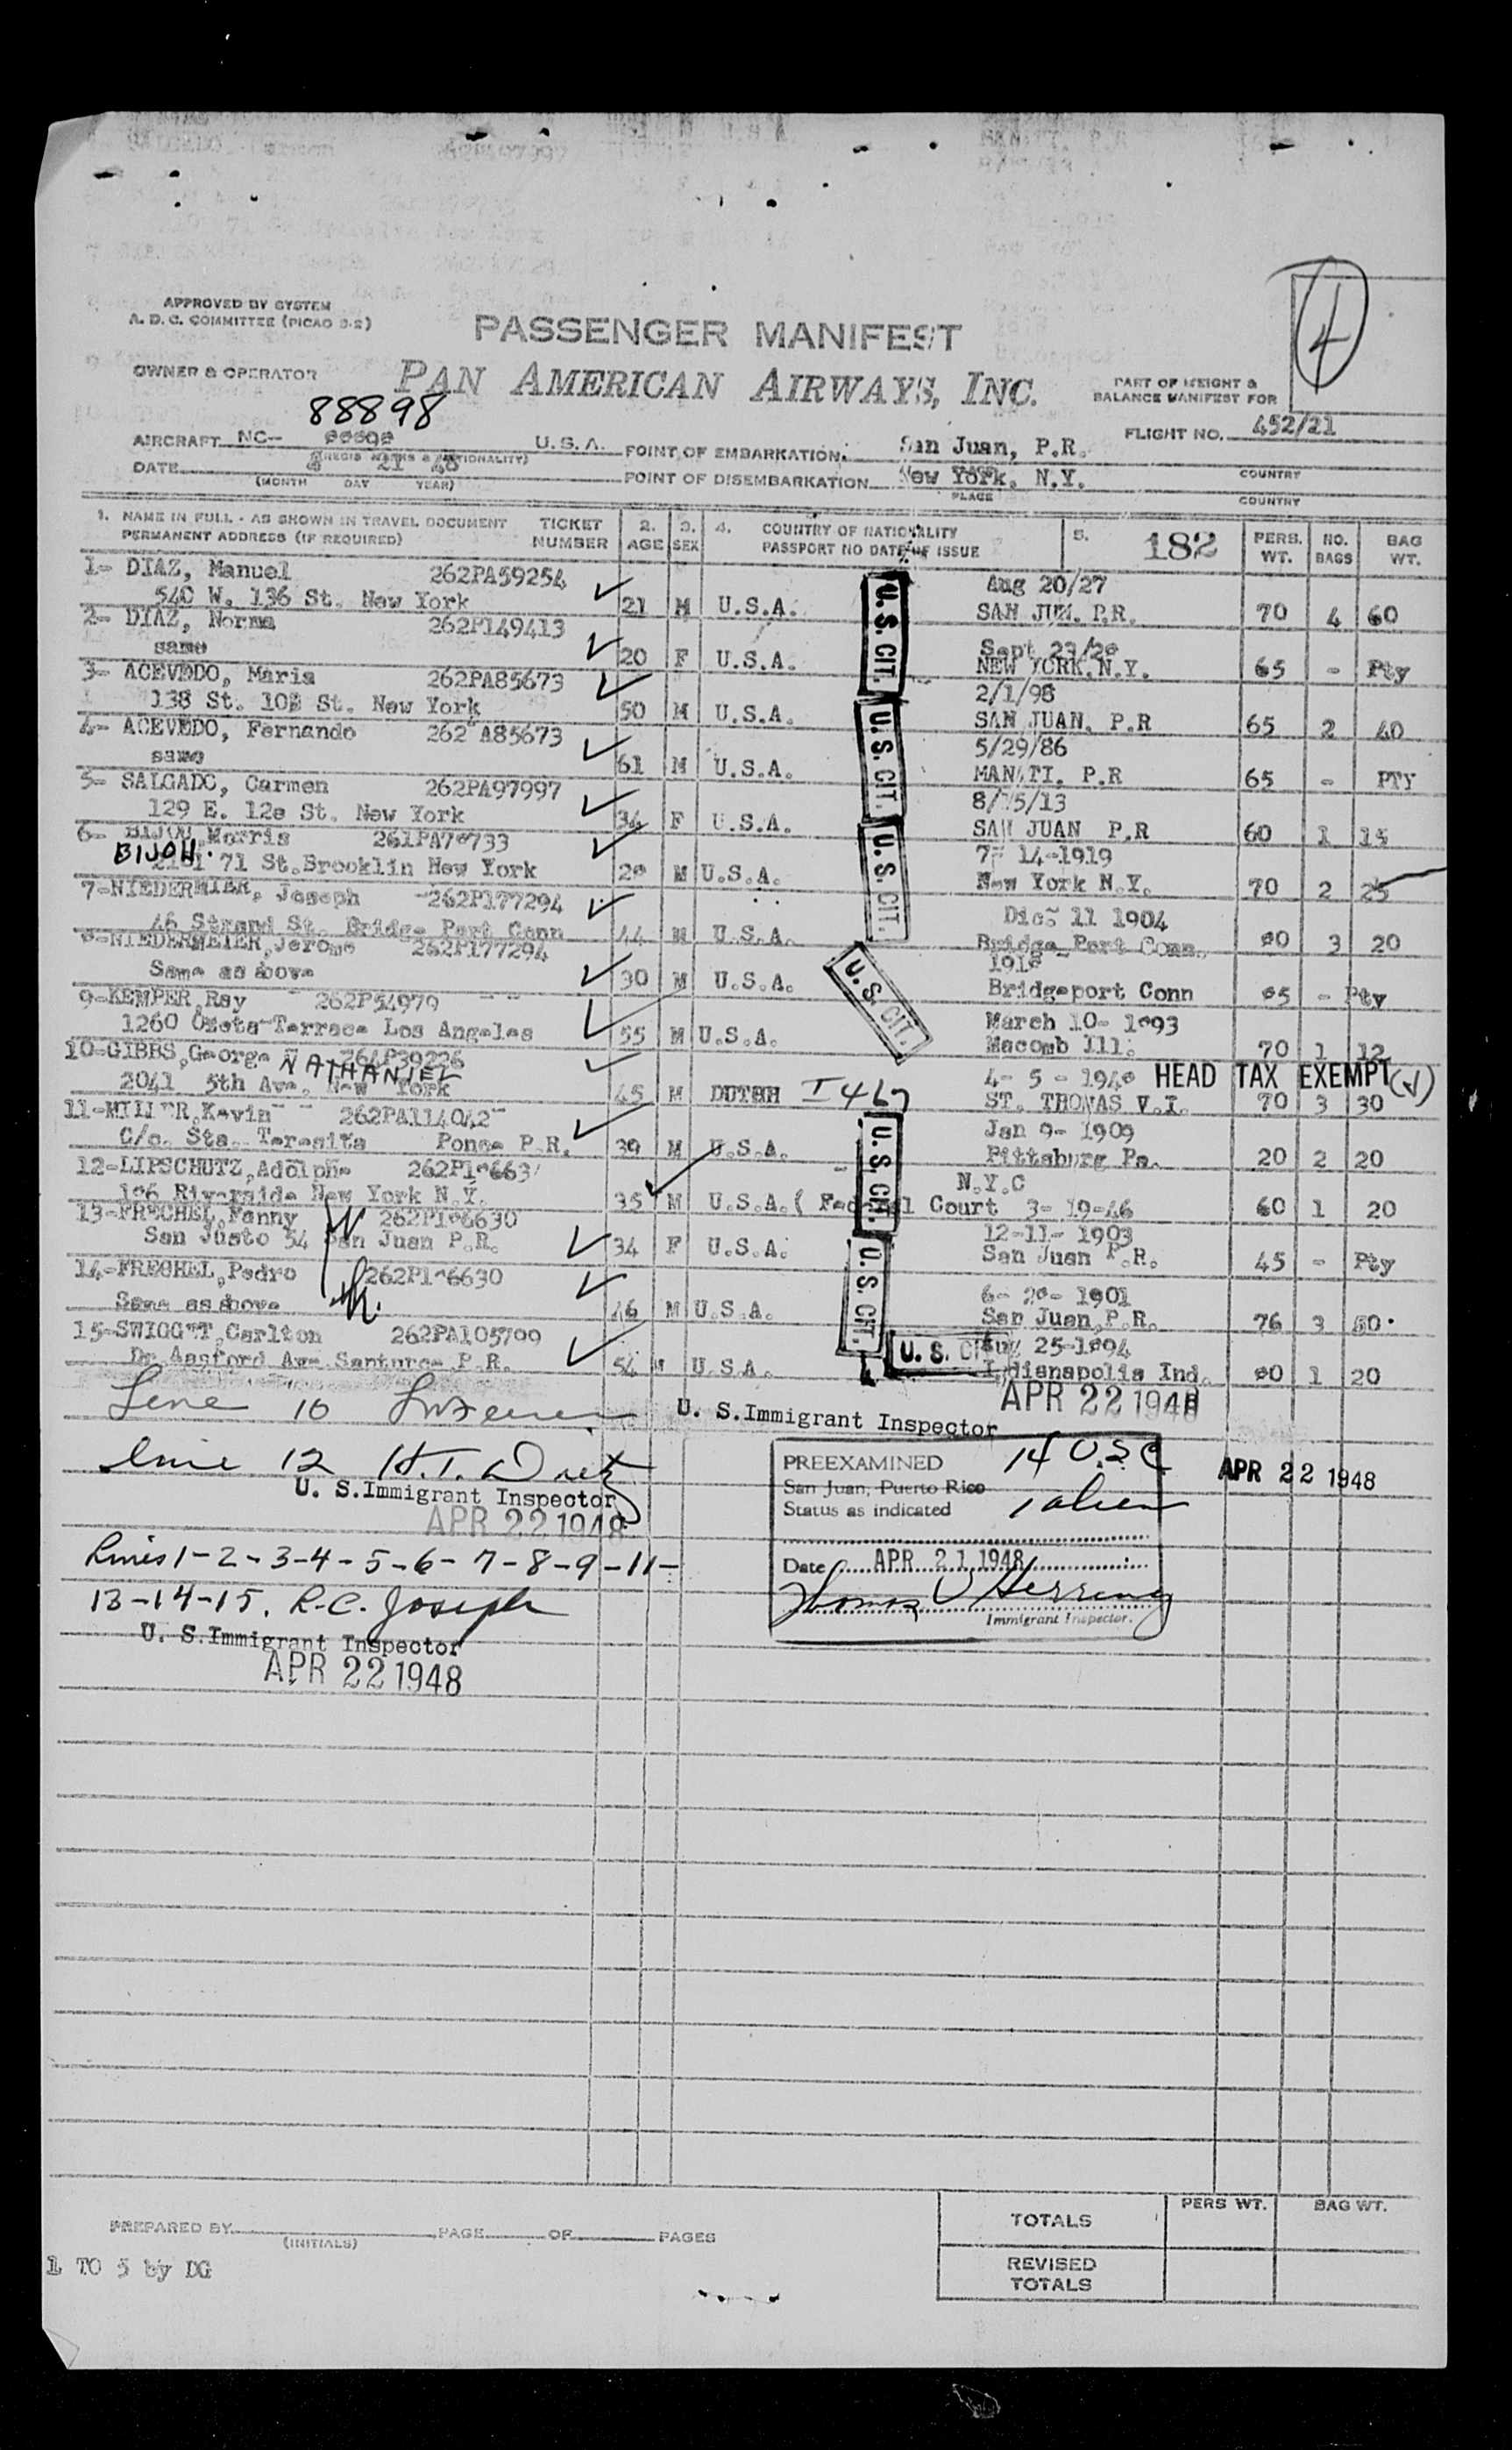 APPROVED BY SYSTEM
A. D. C. COMMITTEE (PICAO 3-2)
PASSENGER MANIFEST
4
OWNER & OPERATOR
PAN AMERICAN AIRWAYS, INC.
PART OF WEIGHT &
BALANCE MANIFEST FOR
88898
AIRCRAFT NC-- U.S.A.
POINT OF EMBARKATION San Juan, P.R.
FLIGHT NO. 452/21
DATE 21 48
(MONTH DAY YEAR)
POINT OF DISEMBARKATION New York, N.Y.
PLACE
COUNTRY
COUNTRY
1. NAME IN FULL - AS SHOWN IN TRAVEL DOCUMENT TICKET 2. 3. 4. COUNTRY OF NATIONALITY 5. 182 PERS. NO. BAG
PERMANENT ADDRESS (IF REQUIRED) NUMBER AGE SEX PASSPORT NO DATE OF ISSUE WT. BAGS WT.
1- DIAZ, Manuel 262PA59254 Aug 20/27
540 W. 136 St. New York 21 M U.S.A. SAN JUN. P.R. 70 4 60
2- DIAZ, Norma 262P149413 Sept
same 20 F U.S.A. NEW YORK.N.Y. 65 - Pty
3- ACEVEDO, Maria 262PA85673 2/1/98
138 St. St. New York 50 M U.S.A. SAN JUAN. P.R 65 2 40
4- ACEVEDO, Fernando 262 A85673 5/29/86
same 61 M U.S.A. MANATI. P.R 65 - PTY
5- SALGADO, Carmen 262PA97997
129 E. 12e St. New York 34 F U.S.A. SAN JUAN P.R 60 1 15
6- Morris 7- 14-1919
BIJOH. 71 St.Brooklin New York M U.S.A. New York N.Y. 70 2 25
7-NIEDERMIER, Joseph 262P177294 Dic- 11 1904
46 Strand St. Bridge Port Conn 44 M U.S.A. Bridge Port Conn. 3 20
8-NIEDERMEIER,Jerome 262P177294
Same as above 30 M U.S.A. Bridgeport Conn - Pty
9-KEMPER,Ray 262P54979 March 10-
1260 Terrace Los Angeles 55 M U.S.A. Macomb Ill. 70 1 12
10-GIBBS,George NATHANIEL 264P39226 4- 5 - HEAD TAX EXEMPT (√)
2041 5th Ave. New York 45 M DUTCH I467 ST. THOMAS V.I. 70 3 30
11-MILLER,Kevin 262PA114042 Jan 9- 1909
C/o. Sta. Teresita Ponce P.R. 39 M U.S.A. Pittsburg Pa. 20 2 20
12-LIPSCHUTZ,Adolph N.Y.C
Riverside New York N.Y. 35 M U.S.A.( Federal Court 3- 19-46 60 1 20
13-FRECHEL,Fanny 12-11- 1903
San Justo 54 San Juan P.R. 34 F U.S.A. San Juan P.R. 45 - Pty
14-FRECHEL,Pedro 1901
Same as above 46 M U.S.A. San Juan,P.R. 76 3 50
15-SWIGGET,Carlton 262PA105799
Ave Santurce P.R. 54 M U.S.A. Indianapolis Ind. 1 20
U.S. CIT.
U.S. CIT.
U.S. CIT.
U.S. CIT.
U.S. CIT.
U.S. CIT.
U.S. CIT.
APR 22 1948
Line 10
U. S.Immigrant Inspector
Line 12 H.T.
U. S.Immigrant Inspector
APR 22 1948
PREEXAMINED 14 U.S.C.
San Juan, Puerto Rico
Status as indicated 1 alien
Date APR 21 1948
Thomas Herring
Immigrant Inspector.
APR 22 1948
Lines 1-2-3-4-5-6-7-8-9-11-
13-14-15. R.C. Joseph
U. S.Immigrant Inspector
APR 22 1948
PREPARED BY PAGE OF PAGES
(INITIALS)
1 TO 5 by DG
PERS WT. BAG WT.
TOTALS
REVISED
TOTALS